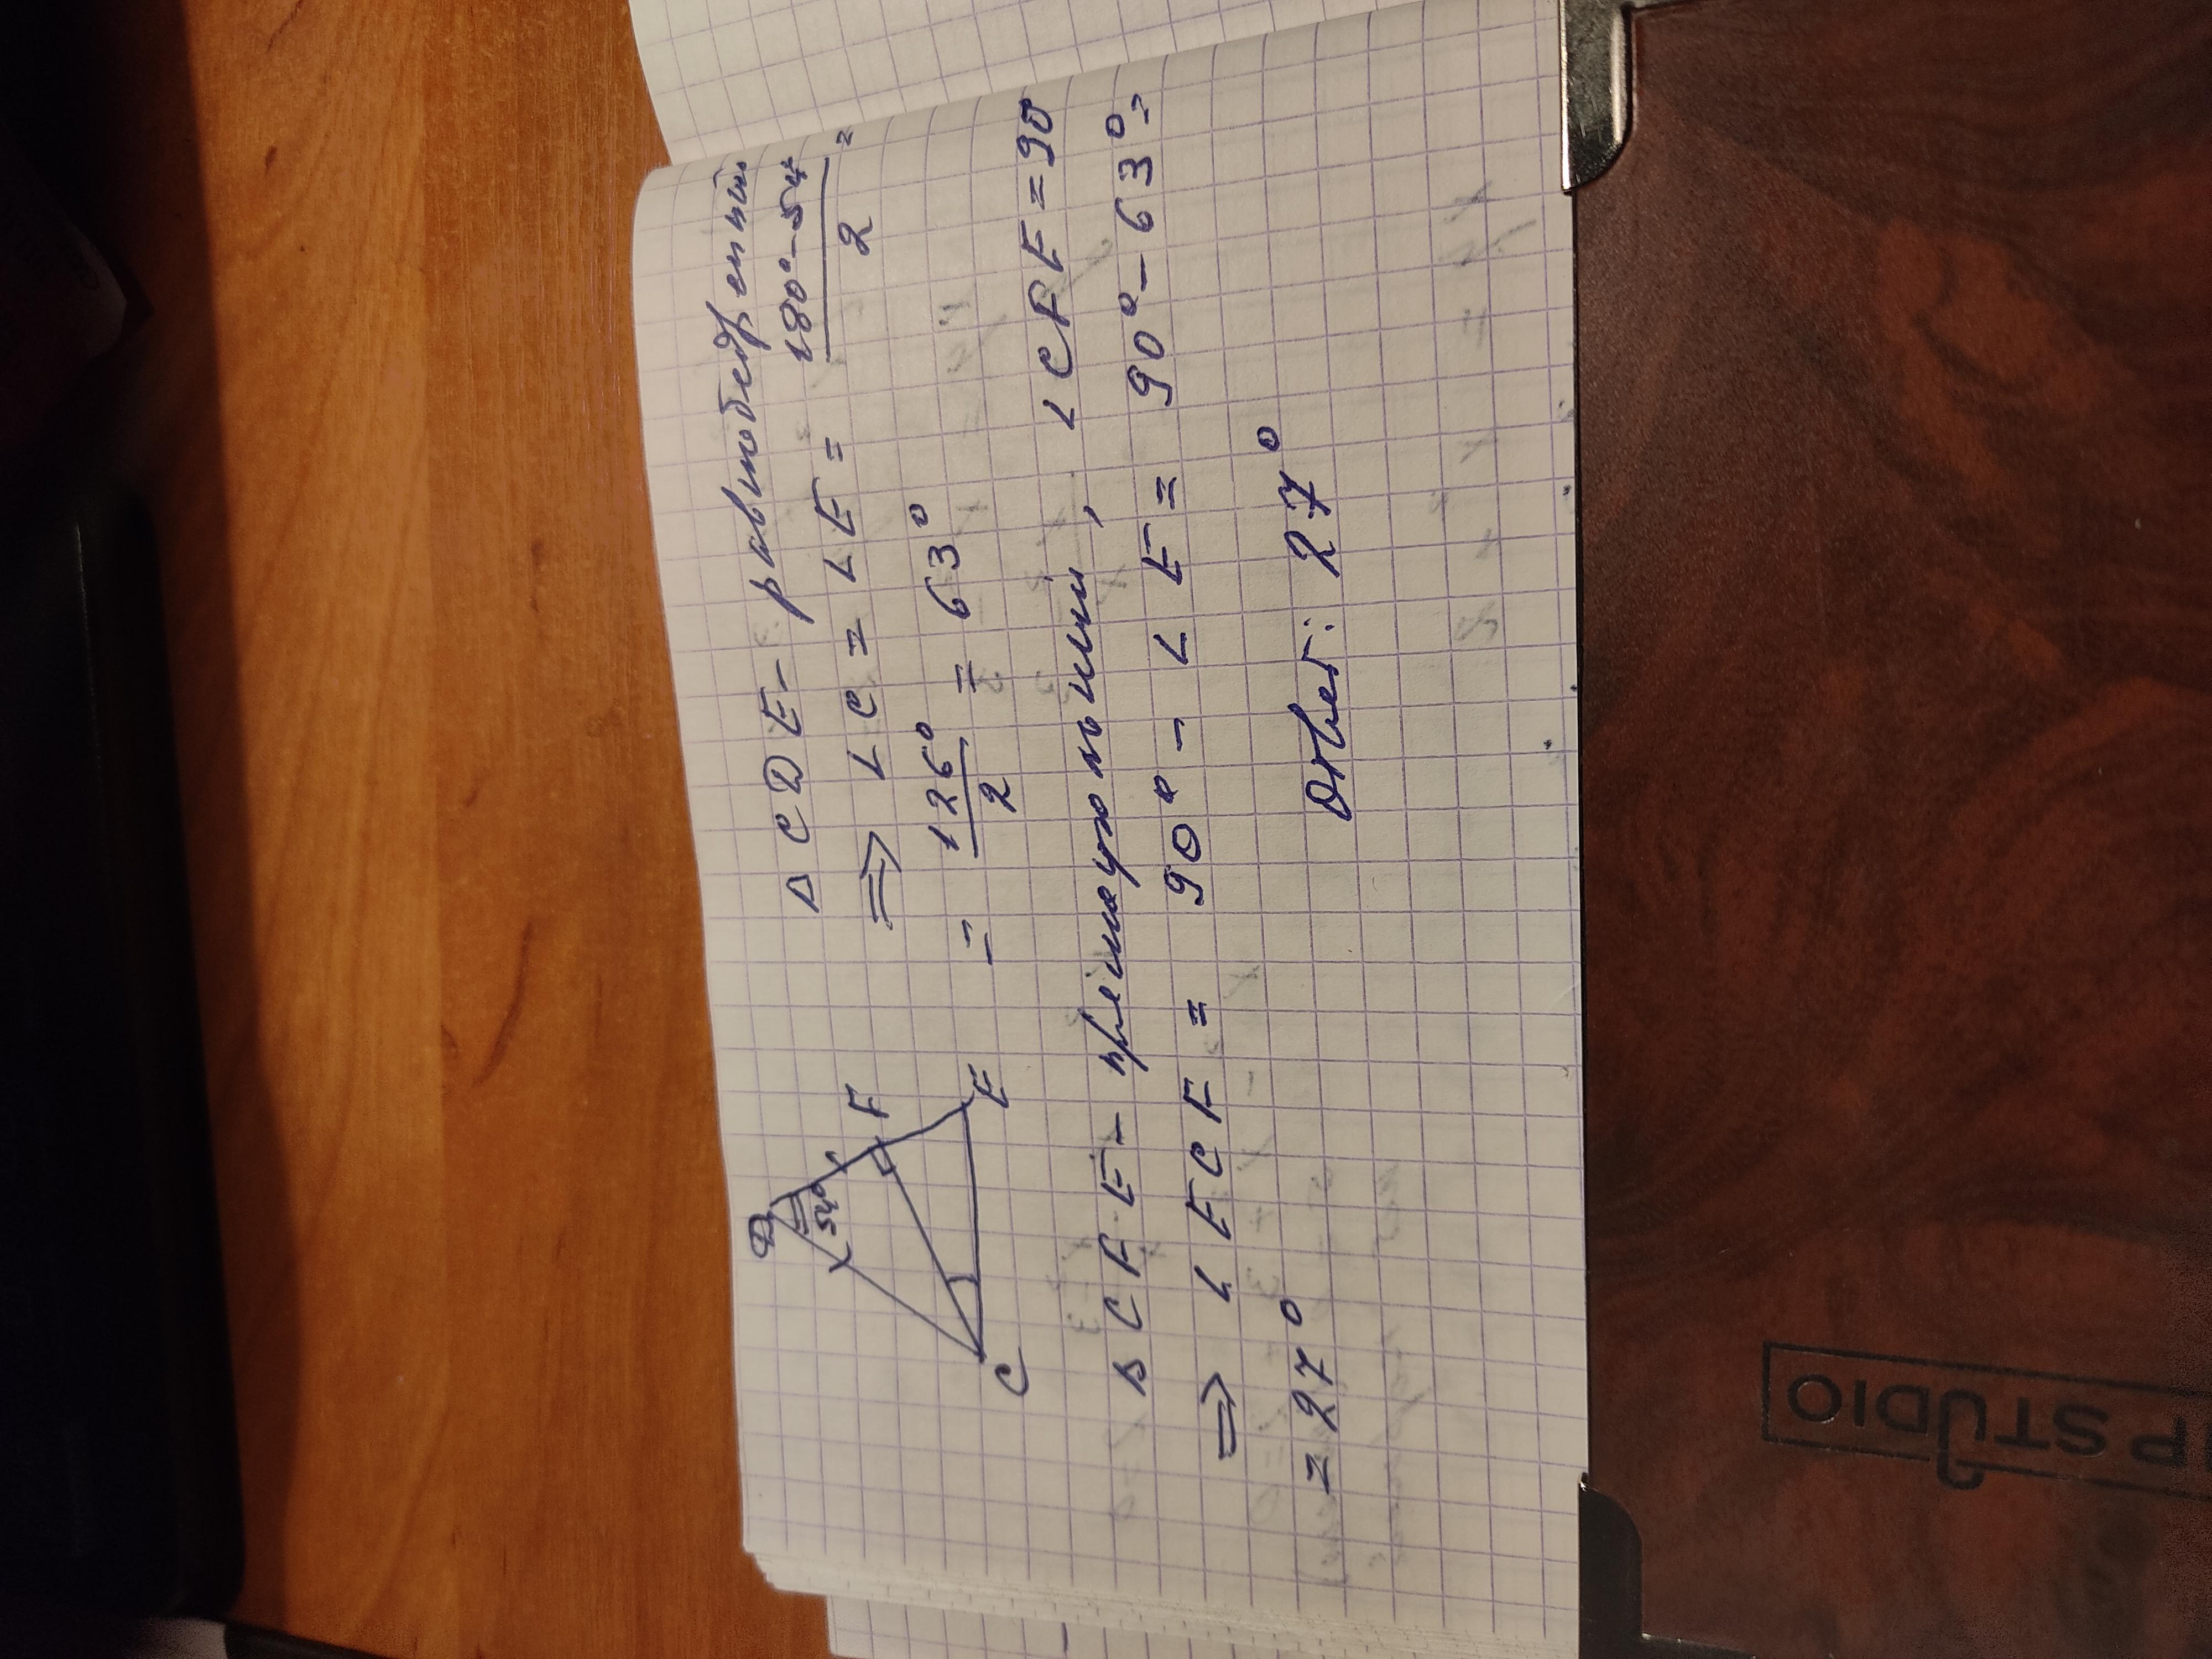 D
54°
F
E
C
Δ CDE - равнобедренный
⇒ ∠C = ∠E = (180° - 54°)/2 =
= 126°/2 = 63°
Δ CFE - прямоугольный, ∠CFE = 90
⇒ ∠ECF = 90° - ∠E = 90° - 63° =
= 27°
Ответ: 27°
UP STUDIO